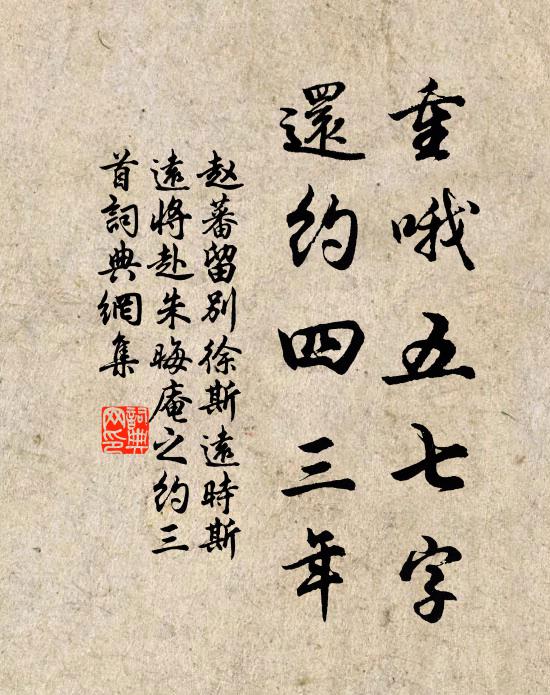 重哦五七字
還約四三年
赵蕃留別徐斯遠時斯
遠將赴朱晦庵之約三
首詞典網集
詞典
网印